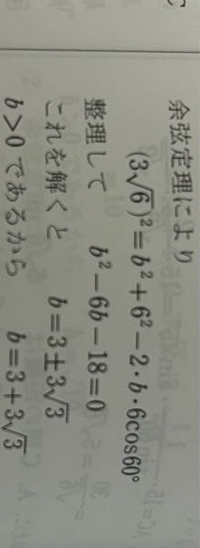 余弦定理により
(3√6)²=b²+6²−2・b・6cos60°
整理して b²−6b−18=0
これを解くと b=3±3√3
b>0であるから b=3+3√3